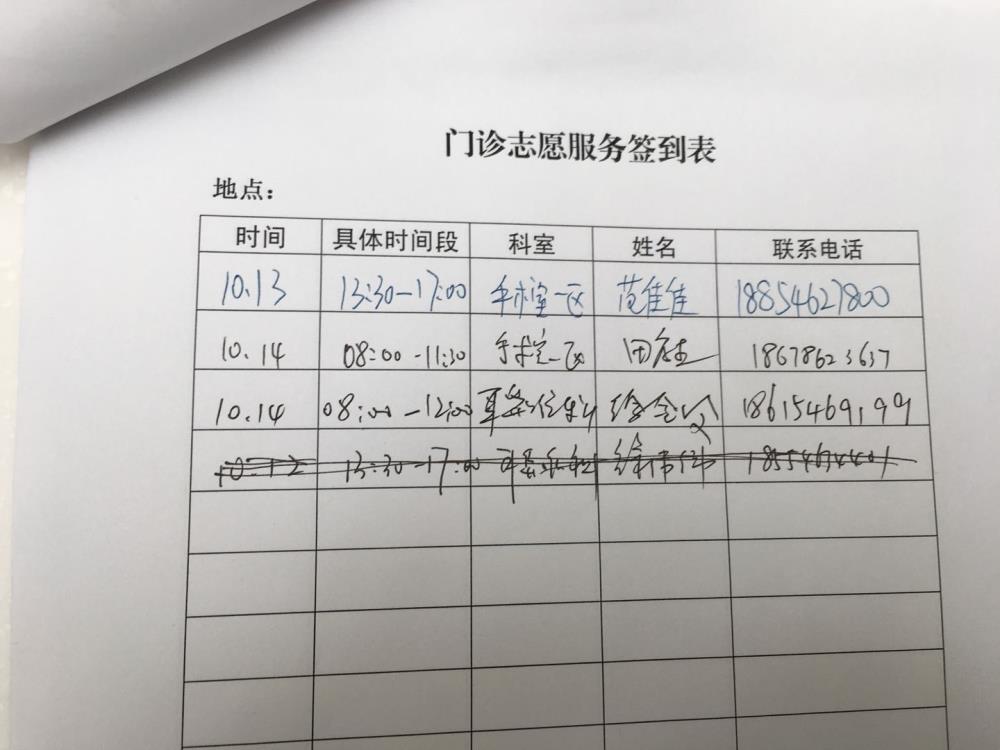 门诊志愿服务签到表
地点：
时间 具体时间段 科室 姓名 联系电话
10.13 13:30-17:00 手术室一区 范佳佳 18854627800
10.14 08:00-11:30 手术室一区 田 18678623637
10.14 08:00-12:00 徐 18615469199
13:30-17:00 徐伟伟